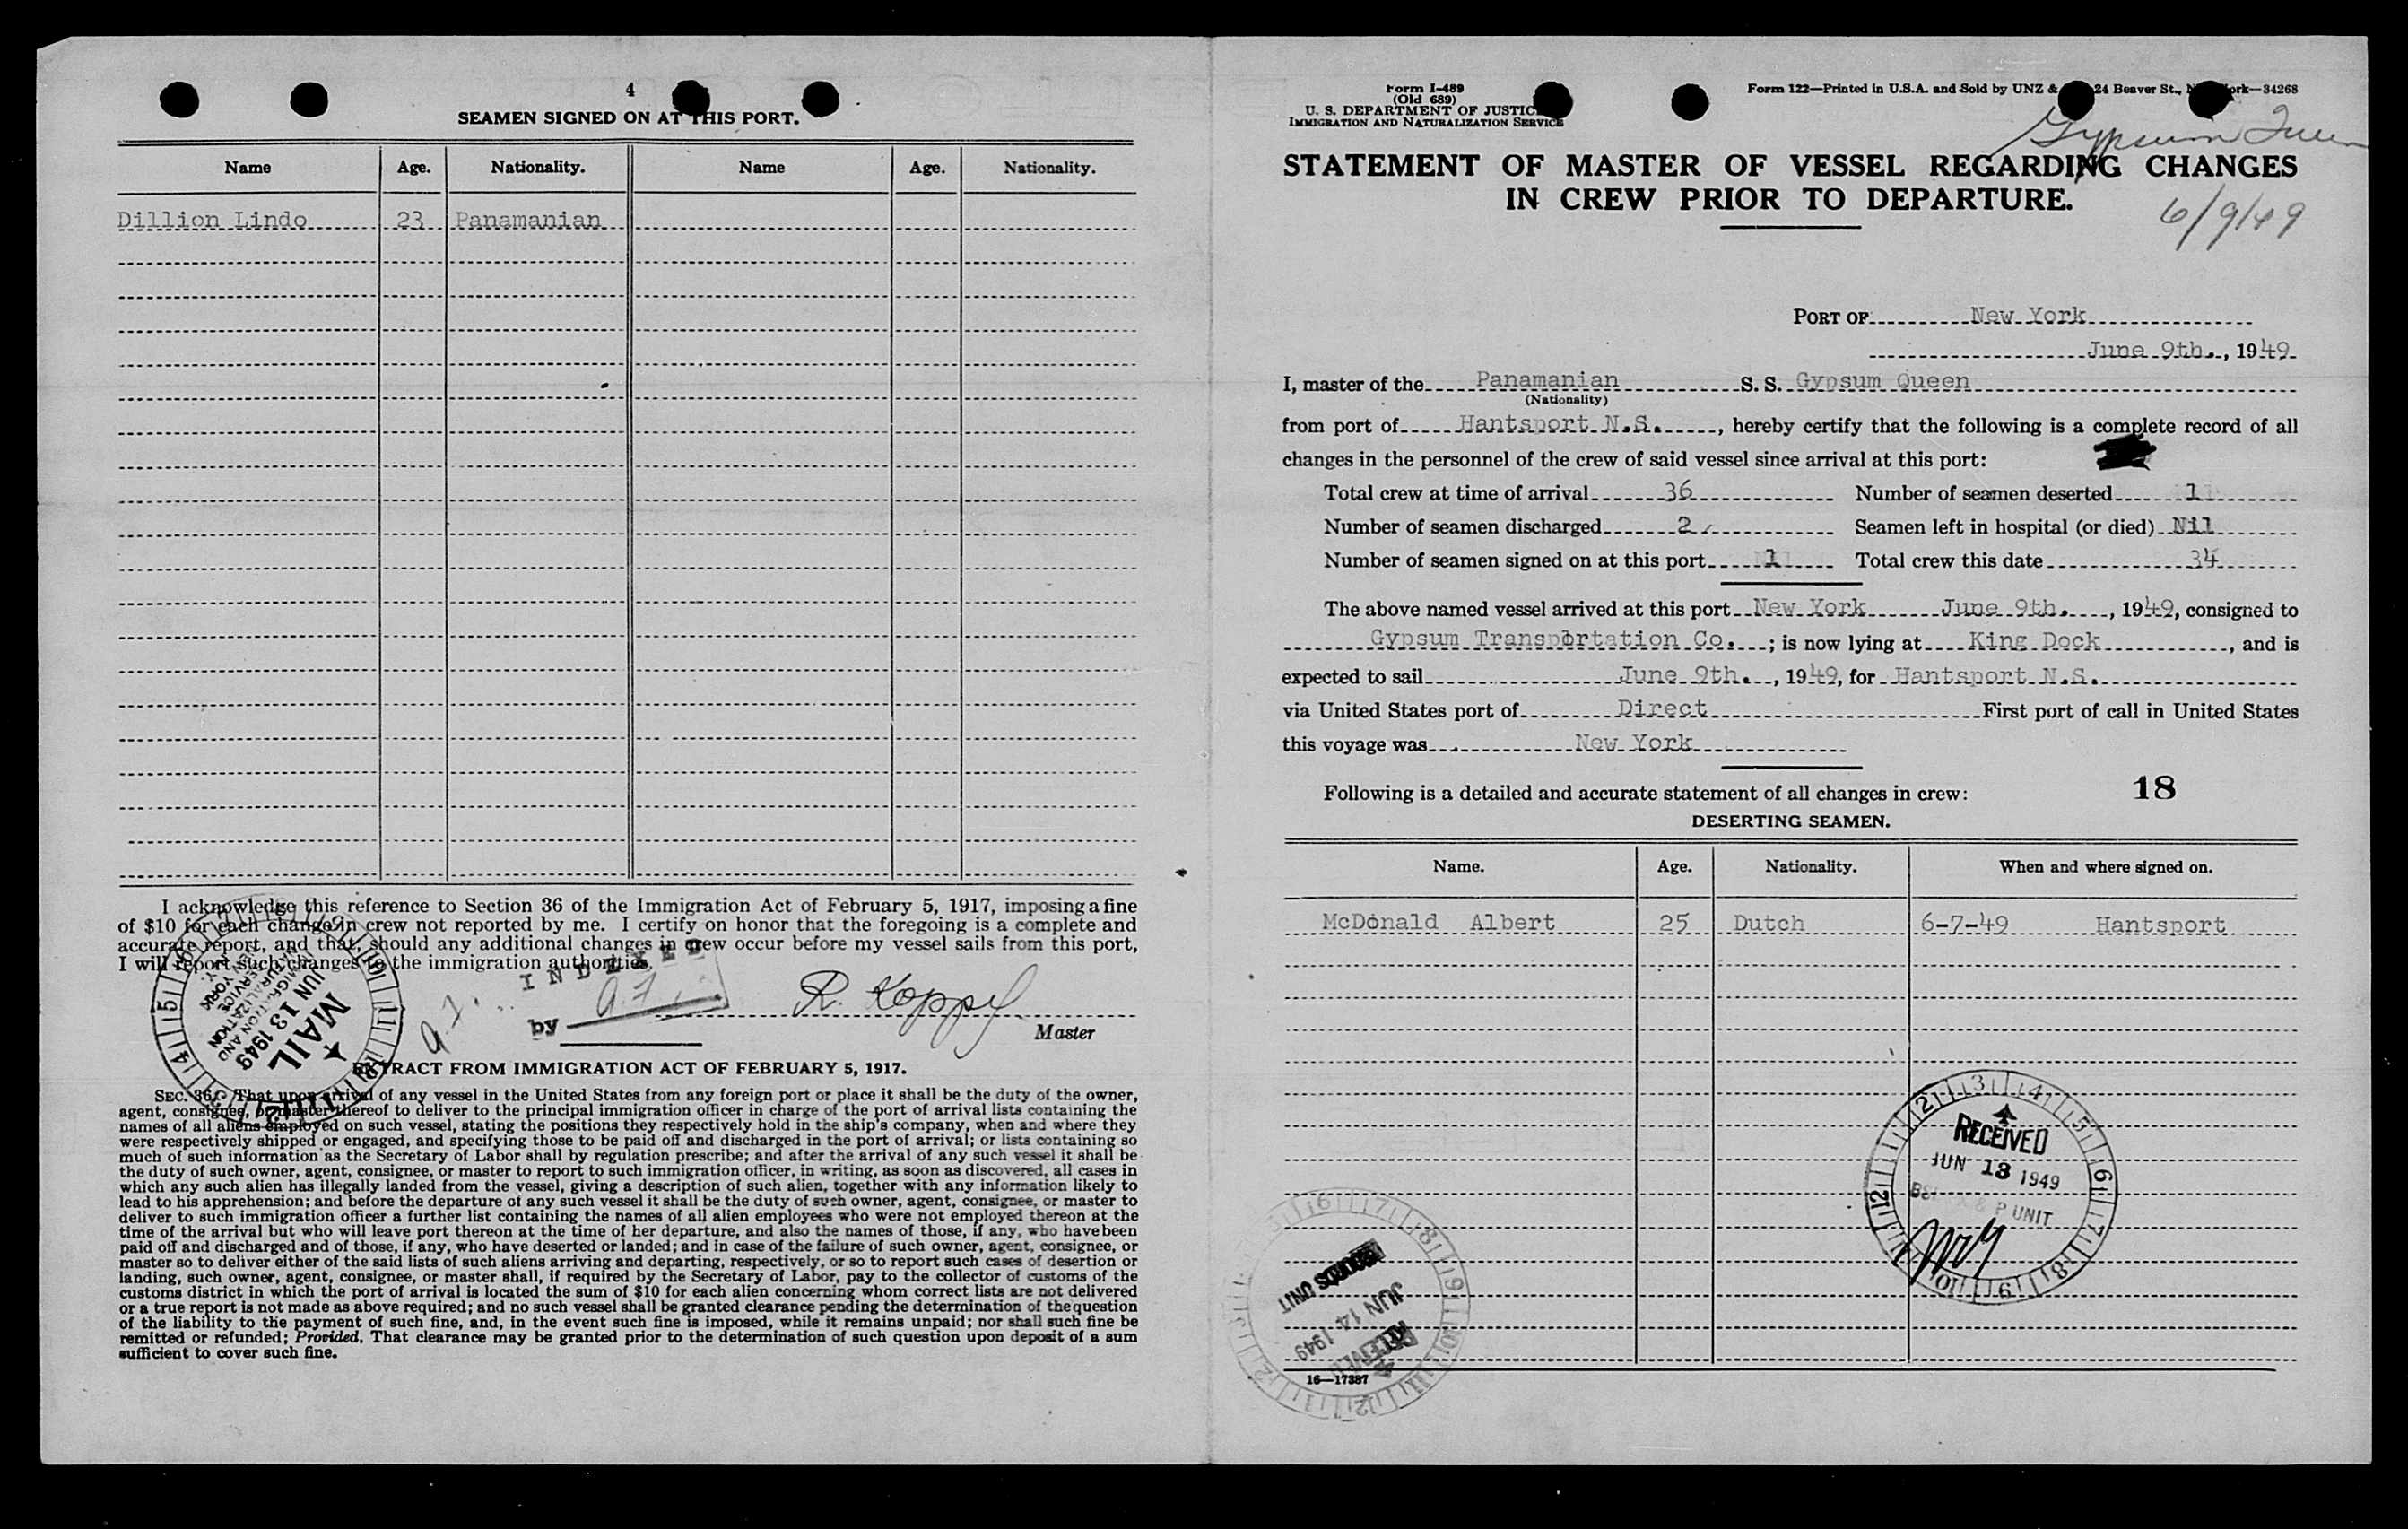 4
SEAMEN SIGNED ON AT THIS PORT.
Name Age. Nationality. Name Age. Nationality.
Dillion Lindo 23 Panamanian
I acknowledge this reference to Section 36 of the Immigration Act of February 5, 1917, imposing a fine
of $10 for each change in crew not reported by me. I certify on honor that the foregoing is a complete and
accurate report, and that, should any additional changes in crew occur before my vessel sails from this port,
I will report such changes to the immigration authorities.
INDEXED
by
R. Koppel
Master
MAIL
JUN 13 1949
IMMIGRATION AND
NATURALIZATION
SERVICE
NEW YORK N.Y.
EXTRACT FROM IMMIGRATION ACT OF FEBRUARY 5, 1917.
SEC. 36. That upon arrival of any vessel in the United States from any foreign port or place it shall be the duty of the owner,
agent, consignee, or master thereof to deliver to the principal immigration officer in charge of the port of arrival lists containing the
names of all aliens employed on such vessel, stating the positions they respectively hold in the ship's company, when and where they
were respectively shipped or engaged, and specifying those to be paid off and discharged in the port of arrival; or lists containing so
much of such information as the Secretary of Labor shall by regulation prescribe; and after the arrival of any such vessel it shall be
the duty of such owner, agent, consignee, or master to report to such immigration officer, in writing, as soon as discovered, all cases in
which any such alien has illegally landed from the vessel, giving a description of such alien, together with any information likely to
lead to his apprehension; and before the departure of any such vessel it shall be the duty of such owner, agent, consignee, or master to
deliver to such immigration officer a further list containing the names of all alien employees who were not employed thereon at the
time of the arrival but who will leave port thereon at the time of her departure, and also the names of those, if any, who have been
paid off and discharged and of those, if any, who have deserted or landed; and in case of the failure of such owner, agent, consignee, or
master so to deliver either of the said lists of such aliens arriving and departing, respectively, or so to report such cases of desertion or
landing, such owner, agent, consignee, or master shall, if required by the Secretary of Labor, pay to the collector of customs of the
customs district in which the port of arrival is located the sum of $10 for each alien concerning whom correct lists are not delivered
or a true report is not made as above required; and no such vessel shall be granted clearance pending the determination of the question
of the liability to the payment of such fine, and, in the event such fine is imposed, while it remains unpaid; nor shall such fine be
remitted or refunded; Provided, That clearance may be granted prior to the determination of such question upon deposit of a sum
sufficient to cover such fine.
Form I-489
(Old 689)
U. S. DEPARTMENT OF JUSTICE
IMMIGRATION AND NATURALIZATION SERVICE
Form 122—Printed in U.S.A. and Sold by UNZ & 24 Beaver St., New York—34268
Gypsum Queen
STATEMENT OF MASTER OF VESSEL REGARDING CHANGES
IN CREW PRIOR TO DEPARTURE.
6/9/49
PORT OF New York
June 9th., 1949
I, master of the Panamanian S. S. Gypsum Queen
(Nationality)
from port of Hantsport N.S., hereby certify that the following is a complete record of all
changes in the personnel of the crew of said vessel since arrival at this port:
Total crew at time of arrival 36 Number of seamen deserted 1
Number of seamen discharged 2 Seamen left in hospital (or died) Nil
Number of seamen signed on at this port 1 Total crew this date 34
The above named vessel arrived at this port New York June 9th., 1949, consigned to
Gypsum Transportation Co.; is now lying at King Dock, and is
expected to sail June 9th., 1949, for Hantsport N.S.
via United States port of Direct First port of call in United States
this voyage was New York
Following is a detailed and accurate statement of all changes in crew: 18
DESERTING SEAMEN.
Name. Age. Nationality. When and where signed on.
McDonald Albert 25 Dutch 6-7-49 Hantsport
RECEIVED
JUN 13 1949
P UNIT
RECORDS UNIT
JUN 14 1949
RECEIVED
16—17387